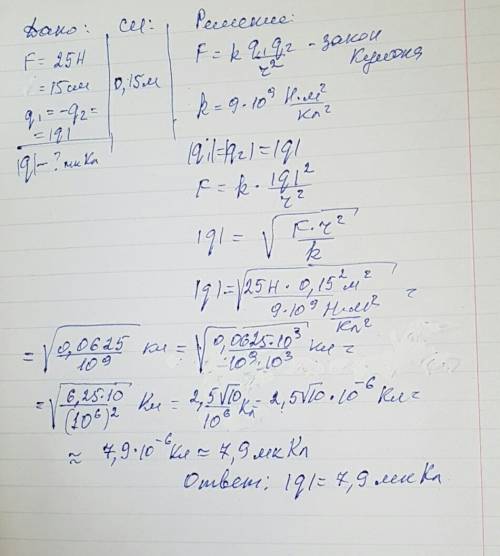 Дано:
F = 25Н
= 15 см
q₁ = -q₂ =
= |q|
|q| - ? мкКл
СИ:
0,15 м
Решение:
F = k q₁q₂/r² - закон Кулона
k = 9·10⁹ Н·м²/Кл²
|q₁|=|-q₂| = |q|
F = k · |q|²/r²
|q| = √(F·r²/k)
|q| = √(25Н · 0,15² м²/(9·10⁹ Н·м²/Кл²)) =
= √(0,0625/10⁹) Кл = √(0,0625·10³/(10⁹·10³)) Кл =
= √(6,25·10/(10⁶)²) Кл = 2,5√10/10⁶ Кл = 2,5√10·10⁻⁶ Кл =
≈ 7,9·10⁻⁶ Кл ≈ 7,9 мкКл
Ответ: |q| = 7,9 мкКл.